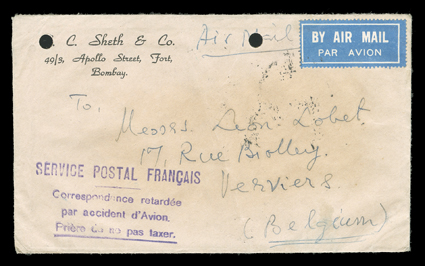 . C. Sheth & Co.
49/3, Apollo Street, Fort,
Bombay.
Air Mail
BY AIR MAIL
PAR AVION
To,
Messrs. Léon Lobet.
17, Rue Biolley.
Verviers
(Belgium)
SERVICE POSTAL FRANÇAIS
Correspondance retardée
par accident d'Avion.
Prière de ne pas taxer.